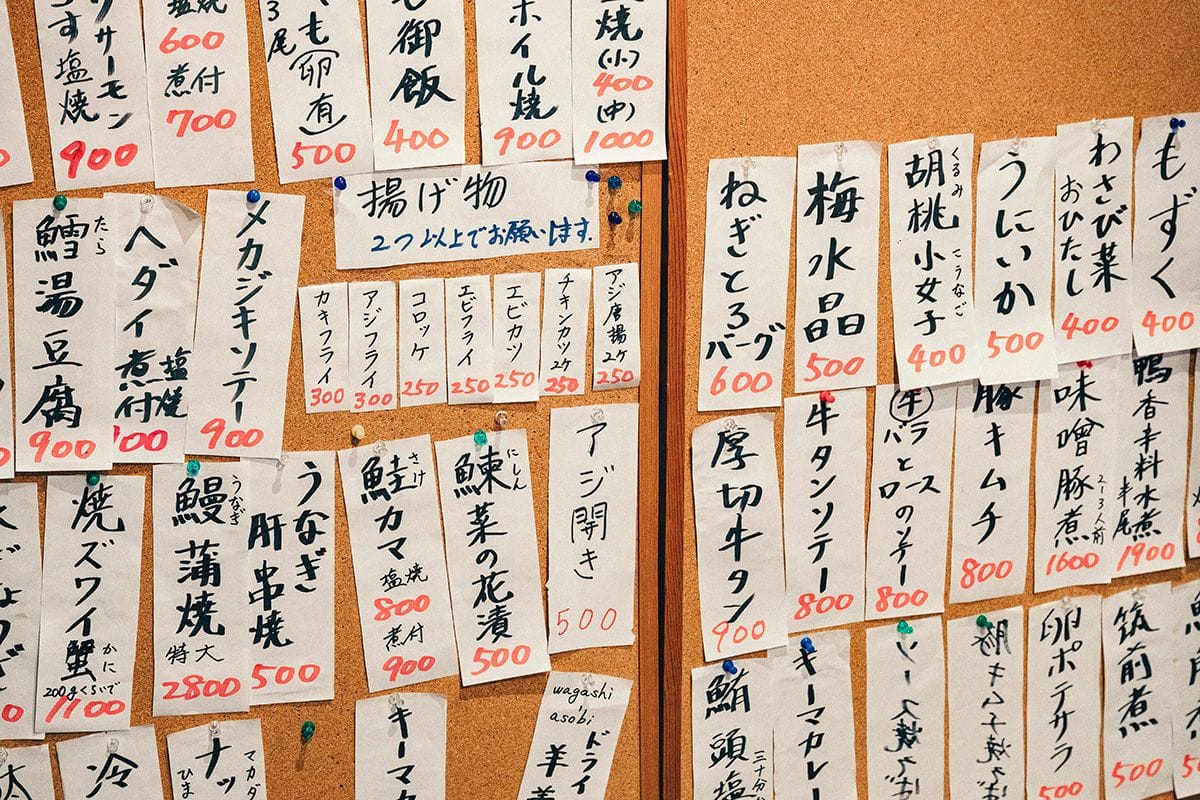 サーモン
塩焼
900
塩焼
600
煮付
700
3尾
(卵有)
500
御飯
400
ホイル焼
900
焼
(小)
400
(中)
1000
揚げ物
2つ以上でお願いします。
鱈湯豆腐
たら
900
ヘダイ
塩焼
煮付
メカジキソテー
900
カキフライ
300
アジフライ
300
コロッケ
250
エビフライ
250
エビカツ
250
チキンカツ2ケ
250
アジ唐揚2ケ
250
焼ズワイ蟹
かに
200gくらいで
1100
鰻蒲焼
うなぎ
特大
2800
うなぎ
肝串焼
500
鮭カマ
さけ
塩焼
800
煮付
900
鰊菜の花漬
にしん
500
アジ開き
500
冷
ナッ
マカダ
キーマ
wagashi
asobi
ドライ
羊
ねぎとろ
バーグ
600
梅水晶
500
胡桃小女子
くるみ
こうなご
400
うにいか
500
わさび菜
おひたし
400
もずく
400
厚切牛タン
900
牛タンソテー
800
牛
バラと
ロースの
ソテー
800
豚キムチ
800
味噌豚煮
2〜3人前
1600
鴨香辛料水煮
半尾
1900
鮪頭塩
キーマカレー
ソース焼そば
豚キムチ焼そば
卵ポテサラ
500
筑前煮
500